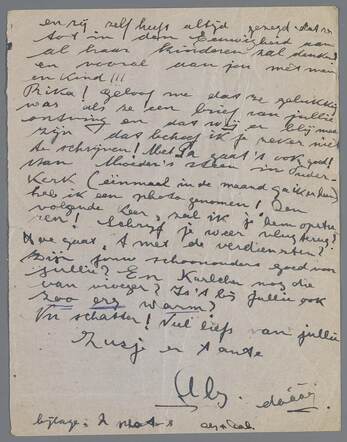 en zij zelf heeft altijd gezegd dat ze
tot in den Eeuwigheid aan
al haar kinderen zal denken
en vooral aan jou met man
en kind!!!
Prika! geloof me dat ze gelukkig
was als ze een brief van jullie
ontving en dat wij er blij mee
zijn dat behoef ik je zeker niet
te schrijven! Met Pa gaat's ook goed!
Van Moeder's steen in
kerk (éénmaal in de maand ga ik erheen)
heb ik een photo genomen! Den
volgende keer, zal ik je hem opstu-
ren! Schrijf je weer vlug terug?
Hoe gaat 't met de verdiensten?
Zijn jouw schoonouders goed voor
jullie? En Karlchen nog die
van vroeger? Is't bij jullie ook
zoo erg warm?
Nu schatten! Veel liefs van jullie
Zusje en tante
dááág
bijlage: 2